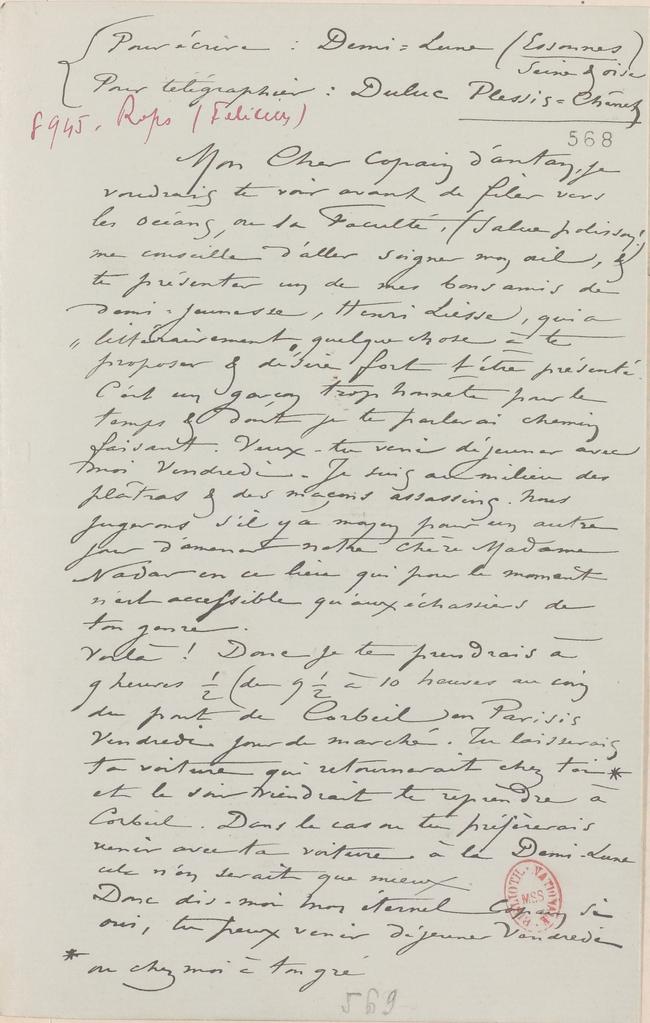 Pour écrire : Demi=Lune (Essonnes)
Seine & oise
Pour télégraphier : Duluc Plessis=Chênet
8945. Rops (Félicien)
568
Mon Cher Copain d'antan, je
voudrais te voir avant de filer vers
les océans, ou la Faculté, (salue polisson!)
me conseille d'aller soigner mon œil, &
te présenter un de mes bons amis de
demi-jeunesse, Henri Liesse, qui a
„ littérairement quelque chose à te
proposer & désire fort t'être présenté.
C'est un garçon trop honnête pour le
temps & dont je te parlerai chemin
faisant. Veux-tu venir déjeuner avec
moi Vendredi. Je suis au milieu des
plâtras & des maçons assassins. Nous
jugerons s'il y a moyen pour un autre
jour d'amener notre chère Madame
Nadar en ce lieu qui pour le moment
n'est accessible qu'aux échassiers de
ton genre.
Voilà ! Donc je te prendrais à
9 heures 1/2 (de 9 1/2 à 10 heures au coin
du pont de Corbeil en Parisis
Vendredi jour de marché. Tu laisserais
ta voiture qui retournerait chez toi *
et le soir viendrait te reprendre à
Corbeil. Dans le cas ou tu préfèrerais
venir avec ta voiture à la Demi-Lune
cela n'en serait que mieux.
Donc dis-moi mon éternel Copain si
oui, tu peux venir déjeuner Vendredi
* ou chez moi à ton gré
BIBLIOTH. NATIONALE
MSS
569